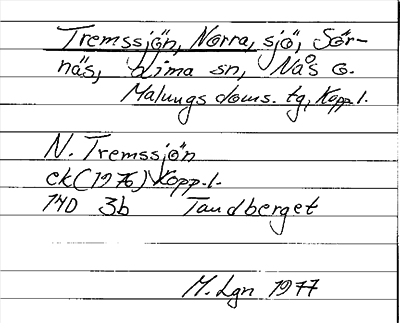 Tremssjön, Norra, sjö, Sör-
näs, Lima sn, Nås o.
Malungs doms. tg, Kopp. l.
N. Tremssjön
ek (1976) Kopp. l.
14D 3b Tandberget
M. Lgn 1977